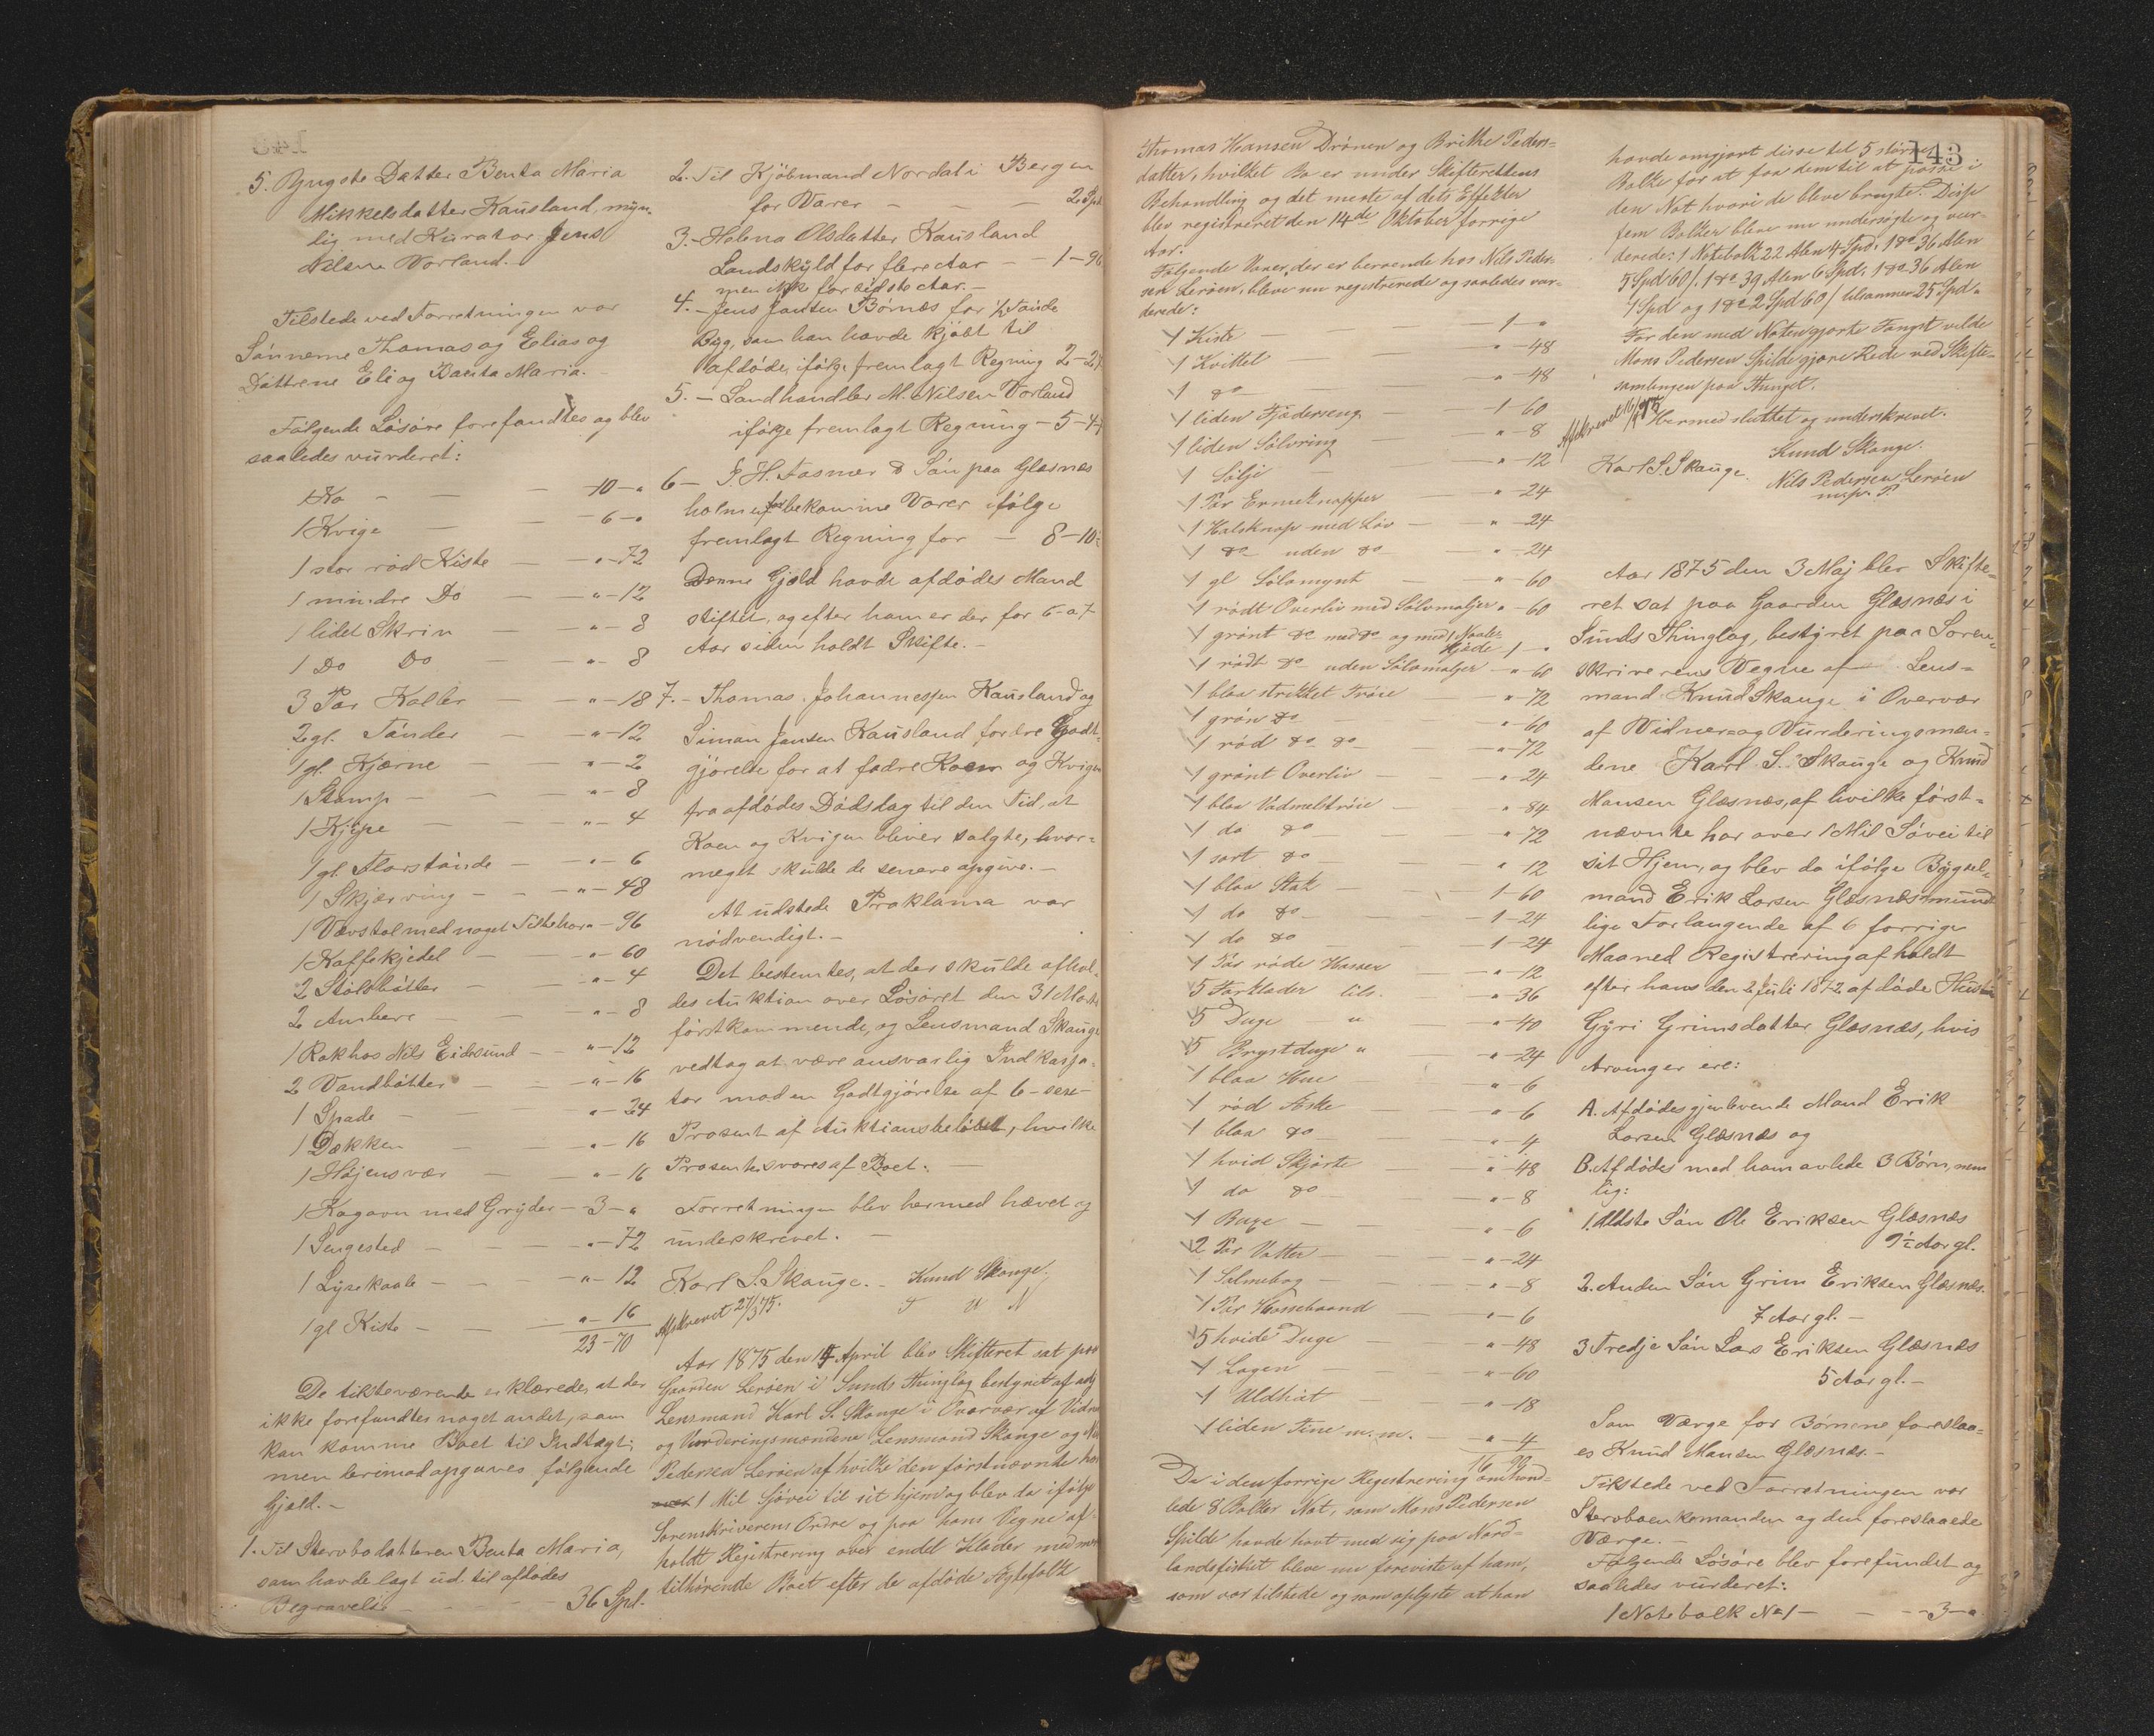 5. Yngste Datter Benta Maria
Mikkelsdatter Kausland, myn-
dig med Kurator Jens
Nilsen Vorland.-
Tilstede ved Forretningen var
Sønnerne Thomas og Elias og
Døttrene Eli og Benta Maria.-
Følgende Løsøre forefandtes og blev
saaledes vurderet:
1 Ko - - - 10 - "
1 Kvige - - 6 - "
1 stor rød Kiste - " - 72
1 mindre Do - " - 12
1 lidet Skrin - " - 8
1 Do Do - " - 8
3 Par Koller - " - 18
2 gl. Tønder - " - 12
1 gl. Kjærne - " - 2
1 Stamp - " - 8
1 Kjipe - " - 4
1 gl. Tønde - " - 6
1 Skjærving - " - 48
1 Vævstol med noget Tilbehør " - 96
1 Kaffekjedel - " - 60
2 Stølsbøtter - " - 4
2 Ambere - " - 8
1 Rok hos Nils Eidesund - " - 12
2 Vandbøtter - " - 16
1 Spade - " - 24
1 Dækken - " - 16
1 Høiensvær - " - 16
1 Kogovn med Gryder - 3 - "
1 Sengested - " - 72
1 Lysekaale - " - 12
1 gl Kiste - " - 16
23 - 70
De tilstedeværende erklærede, at der
ikke forefandtes noget andet, som
kan komme Boet til Indtægt;
men derimod opgaves følgende
Gjæld.-
1. Til Stervbodatteren Benta Maria,
som havde lagt ud til afdødes
Begravelse - - - 36 Spd.
2. Til Kjøbmand Nordal i Bergen
for Varer - - - 2 Spd
3.- Helena Olsdatter Kausland
Landskyld for flere Aar - - 1 - 96
men ikke for sidste Aar.-
4.- Jens Jansen Børnæs for ½ Tønde
Byg, som han havde kjøbt til
afdøde, ifølge fremlagt Regning 2 - 24
5. - Landhandler M. Nilsen Vorland
ifølge fremlagt Regning - 5 - 4
6 - J. H. Fasmer & Søn paa Glæsnæs
holmen for bekomne Varer ifølge
fremlagt Regning for - 8 - 102
Denne Gjæld havde afdødes Mand
stiftet, og efter ham er der for 6 a 7
Aar siden holdt Skifte.-
7. - Thomas Johannessen Kausland og
Simon Jansen Kausland fordre Godt-
gjørelse for at fødre Koen og Kvigen
fra afdødes Dødsdag til den Tid, at
Koen og Kvigen bliver solgte, hvor-
meget skulde de senere opgive.-
At udstede Proklama var
nødvendigt.-
Det bestemtes, at der skulde afhol-
des Auktion over Løsøret den 31 Marts
førstkommende, og Lensmand Skauge
vedtog at være ansvarlig Indkassa-
tor mod en Godtgjørelse af 6 - sex -
Prosent af Auktionsbeløbet, hvilke
Prosenter svares af Boet. -
Forretningen blev hermed hævet og
underskrevet. -
Karl S. Skauge.- Knud Skauge.
Afskrevet 27/3 75.
Aar 1875 den 15 April blev Skifteret sat paa
Gaarden Lerøen i Sunds Thinglag bestyret af adj
Lensmand Karl S. Skauge i Overvær af Vidne
og Vurderingsmændene Lensmand Skauge og Nils
Pedersen Lerøen af hvilke den førstnævnte har
over 1 Mil Sjøvei til sit hjem og blev da ifølge
Sorenskriverens Ordre og paa hans Vegne af-
holdt Registrering over endel Klæder med mere
tilhørende Boet efter de afdøde Ægtefolk
143
Thomas Hansen Drønen og Brithe Peders-
datter, hvilket Bo er under Skifterettens
Behandling og det meste af dets Effekter
blev registreret den 14de Oktober forrige
Aar.
Følgende Varer, der er beroende hos Nils Peder-
sen Lerøen, bleve nu registrerede og saaledes vur-
derede:
1 Kiste - 1 - "
1 Kvittel - " - 48
1 do - " - 48
1 liden Fjæderseng - 1 - 60
1 liden Sølvring - " - 8
1 Sølje - " - 12
1 Par Ermeknapper - " - 24
1 Halsknap med Løv - " - 24
1 do uden do - " - 24
1 gl Sølvmynt - " - 60
1 rødt Overliv med Sølvmaljer " - 60
1 grønt do med do og med 1 Naale-
kjæde 1 - "
1 rødt do uden Sølvmaljer - " - 60
1 blaa strikket Trøie - " - 72
1 grøn do - " - 60
1 rød do do - " - 72
1 grønt Overliv - " - 24
1 blaa Vadmelstrøie - " - 84
1 do do - " - 72
1 sort do - " 12
1 blaa Stak - 1 - 60
1 do do - 1 - 24
1 do do - 1 - 24
1 Par røde Hoser - " - 12
5 Forklæder tils. - " - 36
5 Duge " - " - 40
5 Brystduge " - " - 24
1 blaa Hue - " - 6
1 rød Æske - " - 6
1 blaa do - " - 4
1 hvid Skjorte - " - 48
1 do do - " - 8
1 Buxe - " - 6
2 Par Vatter - " - 24
1 Salmebog - " - 8
1 Par Hossebaand - " - 6
5 hvide Duge - " - 48
1 Lagen - " - 60
1 Uldhat - " - 18
1 liden Tine m.m. - " - 4
16 99
Da i den forrige Registrering omhand-
lede 8 Bolker Not, som Mons Pedersen
Spilde havde havt med sig paa Nord-
landsfisket bleve nu foreviste af ham,
som var tilstede og som oplyste at han
havde omgjort disse til 5 større
Bolke for at faa dem til at passe i
den Not hvori de bleve brugte. Disse
fem Bolker bleve nu undersøgte og vur-
derede: 1 Notebolk 22 Alen 4 Spd, 1 do 36 Alen
5 Spd 60 /. 1 do 39 Alen 6 Spd, 1 do 36 Alen
4 Spd og 1 do 2 Spd 60 / tilsammen 25 Spd.
For den med Noten gjorte Fangst vilde
Mons Pedersen Spilde gjøre Rede ved Skifte-
samlingen paa Thinget.
Hermed sluttet og underskrevet.
Knud Skauge.
Karl S. Skauge. Nils Pedersen Lerøen
m.f.P.
Aar 1875 den 3 Maj blev Skifte-
ret sat paa Gaarden Glæsnæs i
Sunds Thinglag, bestyret paa Soren-
skriverens Vegne af Lens-
mand Knud Skauge i Overvær
af Vidner og Vurderingsmæn-
dene Karl S. Skauge og Knud
Monsen Glæsnæs, af hvilke først-
nævnte har over 1 Mil Søvei til
sit Hjem, og blev da ifølge Bygsel-
mand Erik Larsen Glæsnæs mundt
lige Forlangende af 6 forrige
Maaned Registrering afholdt
efter hans den 2 Juli 1872 afdøde Hustru
Gyri Grimsdatter Glæsnæs, hvis
Arvinger ere:
A. Afdødes gjenlevende Mand Erik
Larsen Glæsnæs og
B. Afdødes med ham avlede 3 Børn, nem
lig:
1. Ældste Søn Ole Eriksen Glæsnæs
9½ Aar gl.
2. Anden Søn Grim Eriksen Glæsnæs.
7 Aar gl.-
3 Tredje Søn Lars Eriksen Glæsnæs
5 Aar gl.-
Som Værge for Børnene foreslaa-
es Knud Monsen Glæsnæs.-
Tilstede ved Forretningen var
Stervboenkemanden og den foreslaaede
Værge.-
Følgende Løsøre blev forefundet og
saaledes vurderet:
1 Notebolk No 1 - - - 3 - "